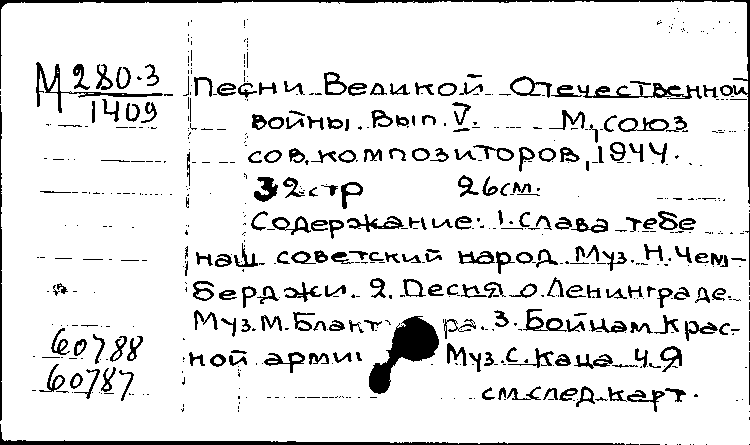 М 280-3
1409
Песни Великой Отечественной
войны. Вып. V. М., Союз
сов. композиторов, 1944.
32 стр 26 см.
Содержание: 1. Слава тебе
наш советский народ Муз. Н. Чем-
берджи. 2. Песня о Ленинграде.
Муз. М. Блант ра. 3. Бойцам Крас-
ной арми Муз. С. Каца 4. Я
см след. карт.
60788
60787